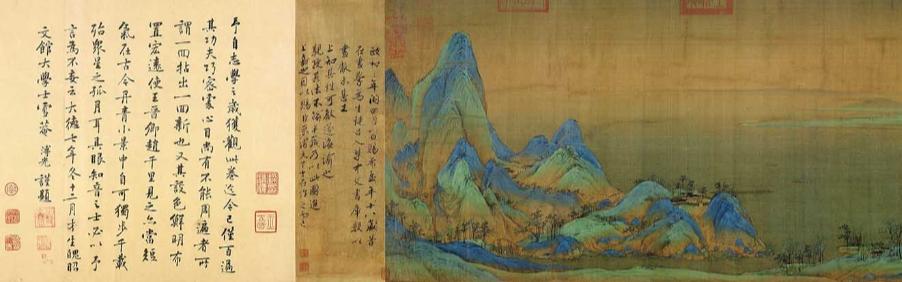 政和三年閏四月八日賜希孟年十八歲昔
在畫學為生徒召入禁中文書庫數以
畫獻未甚工
上知其性可教遂誨諭之
親授其法不踰半歲乃以此圖進
上嘉之因以賜臣京謂天下士在作之而已
予自志學之歲獲觀此卷迄今已僅百過
其功夫巧密處心目尚有不能周遍者所
謂一囬拈出一囬新也又其設色鮮明布
置宏遠使王晉卿趙千里見之亦當短
氣在古今丹青小景中自可獨步千載
殆衆星之孤月耳具眼知音之士必以予
言為不妄云大德七年冬十二月才生魄昭
文館大學士雪菴溥光謹題